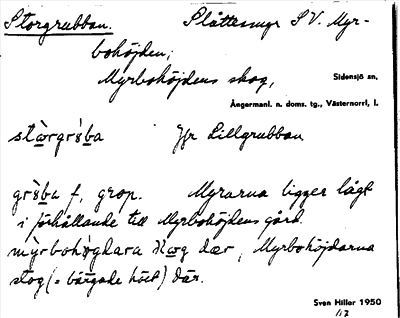 Storgrubban. Slåttesmyr S V. Myr-
bohöjden;
Myrbohöjdens skog,
Sidensjö sn,
Ångermanl. n. doms. tg., Västernorrl. l.
Jfr Lillgrubban
f, grop. Myrarna ligger lågt
i förhållande till Myrbohöjdens gård.
Myrbohöjdarna
slog (= bärgade höet) där.
Sven Hiller 1950